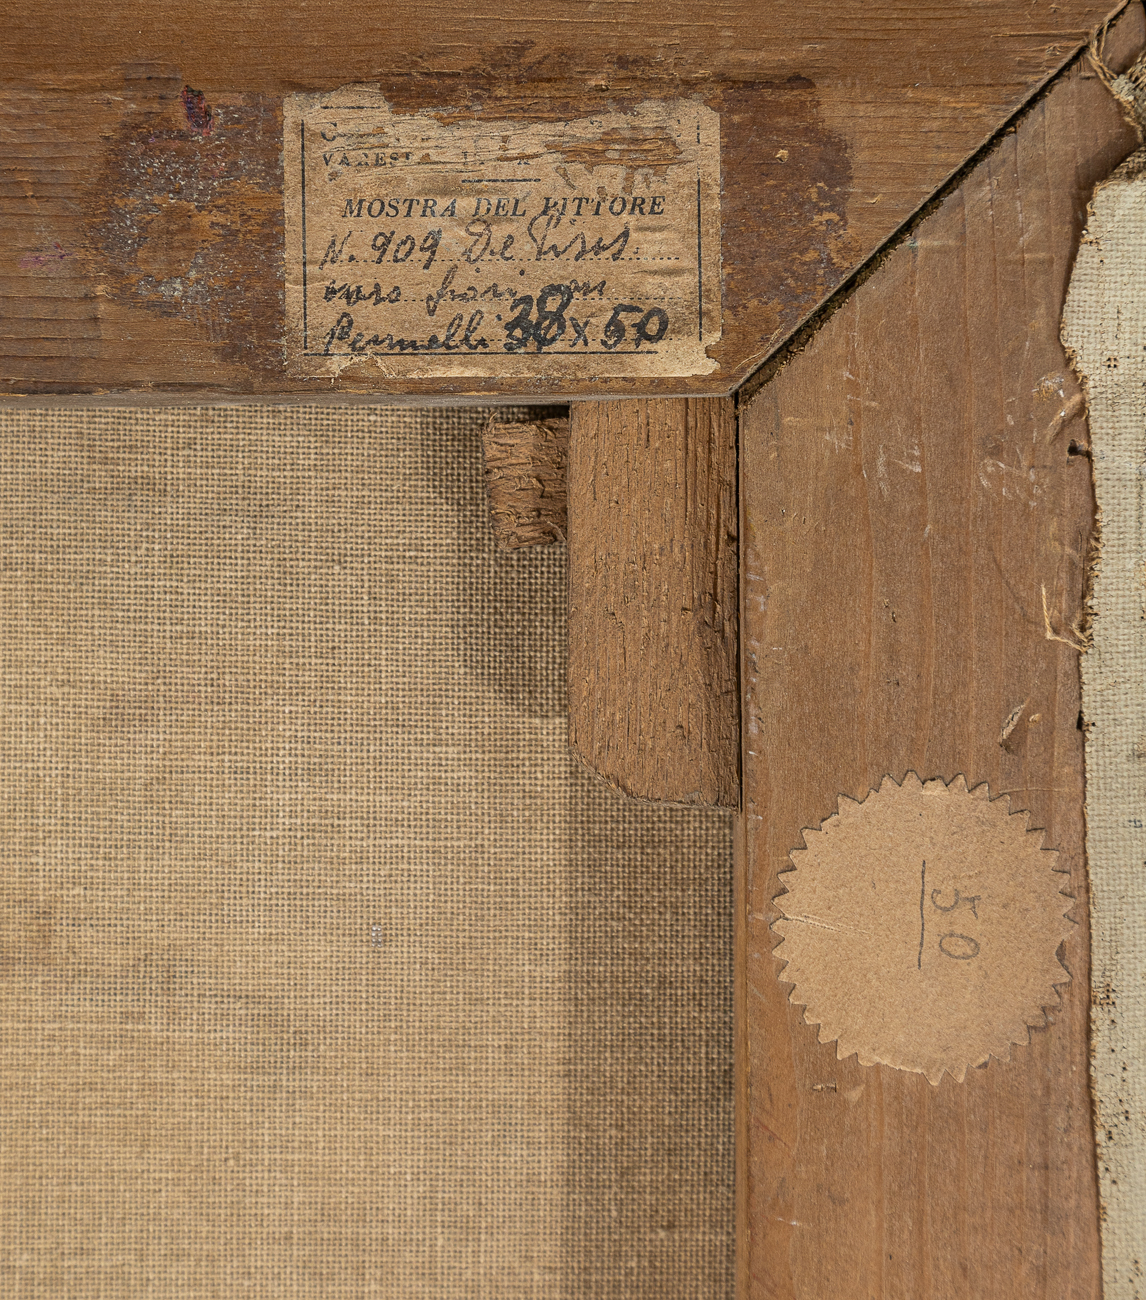 MOSTRA DEL PITTORE
N. 909 De Pisis
vaso fiori con
Pennelli 38 x 50
50